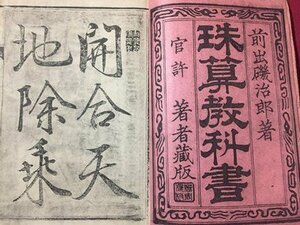 前出礒治郎著
珠算教科書
官許 著者藏版
開合天
地除乘